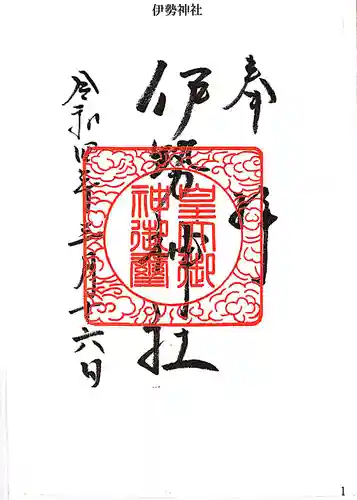 伊勢神社
奉拝
伊勢神社
皇大御
神御璽
令和四年三月十六日
1